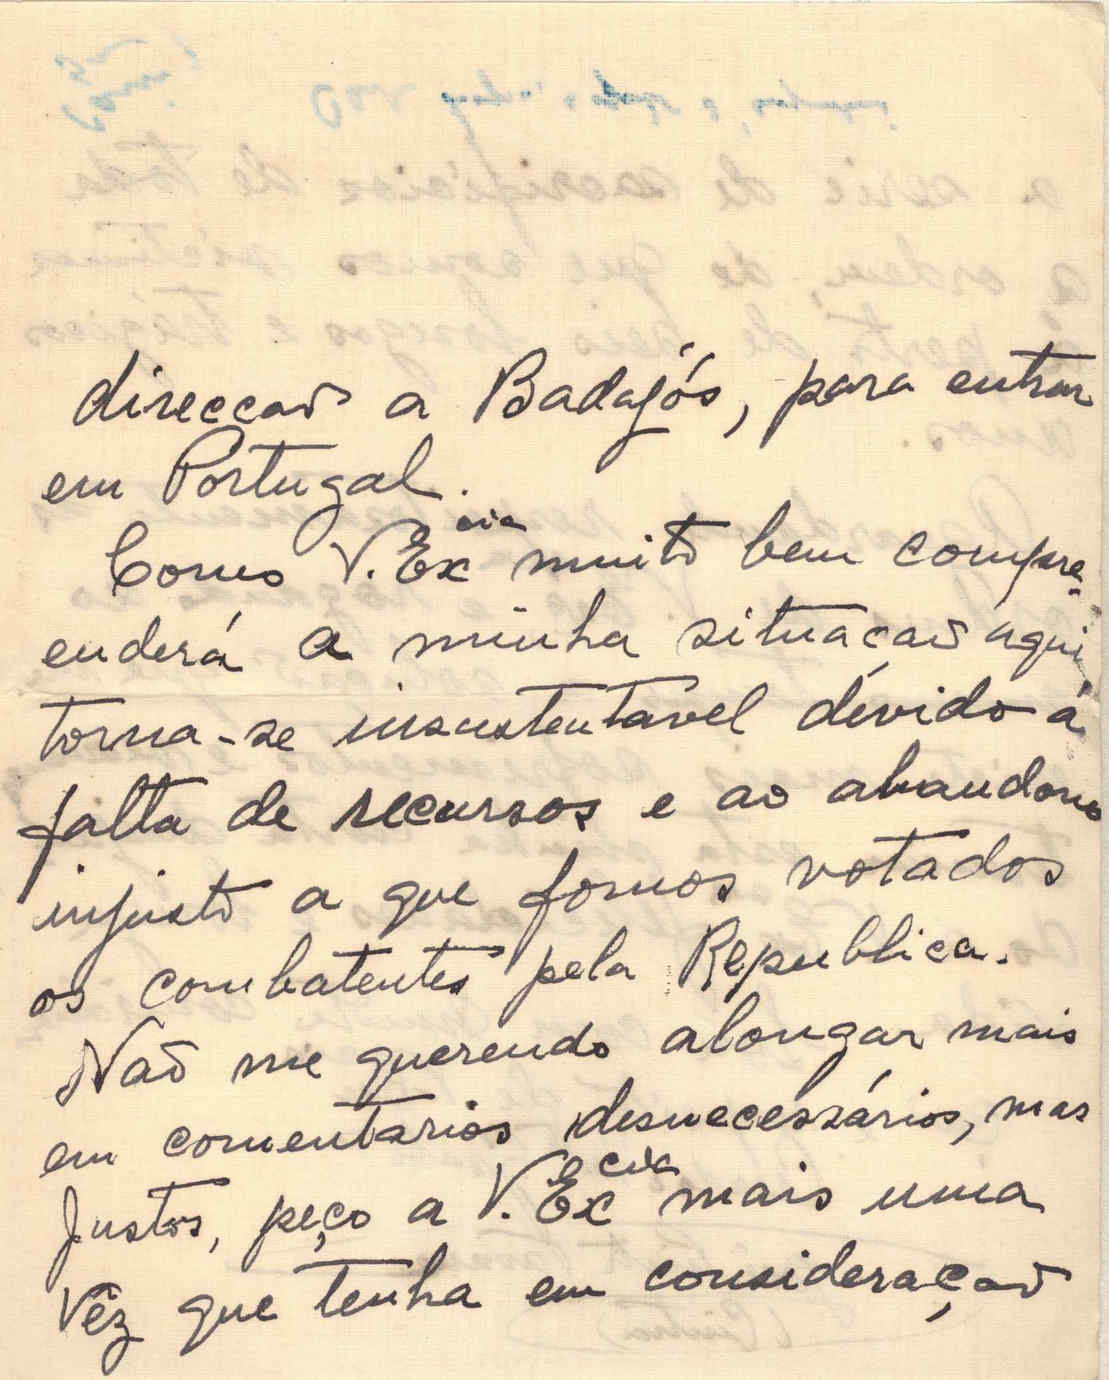 direcção a Badajós, para entrar
em Portugal.
Como V. Ex cia muito bem compre-
enderá a minha situacão aqui
torna-se insustentavel dévido á
falta de recursos e ao abandono
injusto a que fomos votados
os combatentes pela Republica.
Não me querendo alongar mais
em comentarios desnecessários, mas
justos, peço a V. Ex cia mais uma
Vêz que tenha em consideração